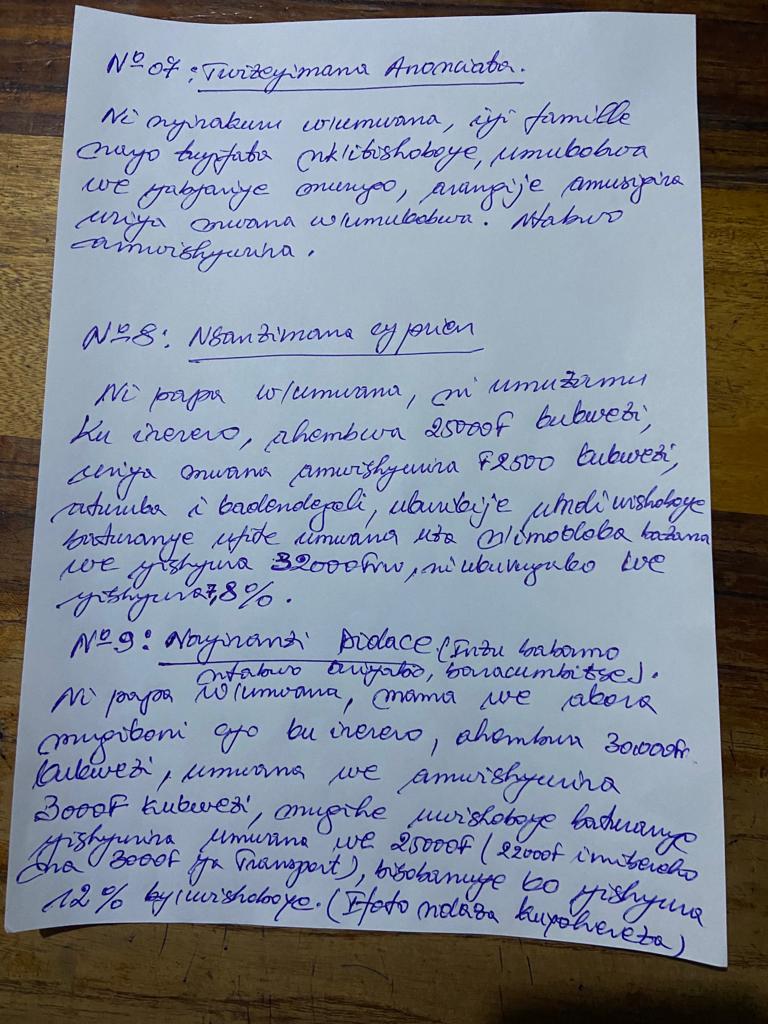 Nº 07: Twizeyimana Anonciata.
Ni nyirakuru w'umwana, iyi famille
nayo tuyifata nk'itishoboye, umukobwa
we yabyariye murugo, arangije amusigira
uriya mwana w'umukobwa. Ntabwo
amwishyurira.
Nº 8: Nsanzimana cyprien
Ni papa w'umwana, ni umuzamu
Ku irerero, ahembwa 25000F kukwezi,
uriya mwana amwishyurira F2500 kukwezi,
aturuka i kadendegeli, ubundi uwishoboye
baturanye ufite umwana uza n'imodoka bazana
we yishyura 32000Frw, ni ukuvugako we
yishyura 7,8%.
Nº 9: Nayiranzi Didace (Inzu babamo
ntabwo ariyabo, baracumbitse).
Ni papa w'umwana, mama we akora
mugikoni cyo ku irerero, ahembwa 30000Fr
kukwezi, umwana we amwishyurira
3000F kukwezi, mugihe uwishoboye baturanye
yishyurira umwana we 25000F (22000F
na 3000F ya Transport), bisobanuye ko yishyura
12% by'uwishoboye. (Ifoto ndaza kuyohereza)